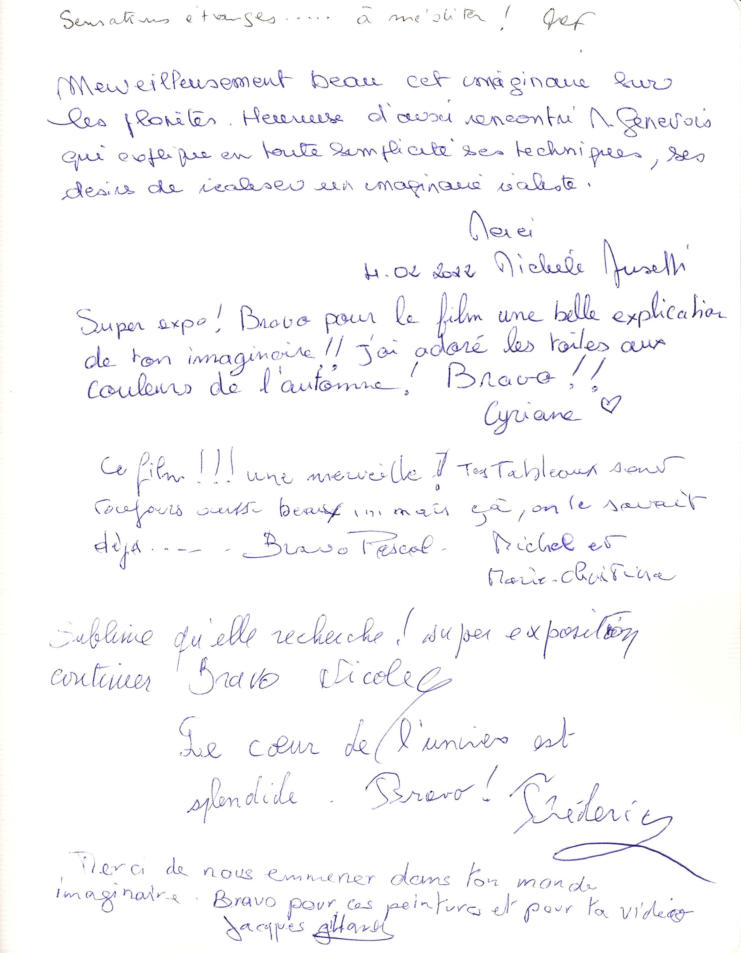 Sensations étranges..... à méditer !
Merveilleusement beau cet imáginaire sur
les planètes. Heureuse d'avoir rencontré M. Genevois
qui explique en toute simplicité ses techniques, ses
désirs de réaliser un imaginaire réaliste.
Merci
4.02 2022 Michèle
Super expo! Bravo pour le film une belle explication
de ton imaginaire!! j'ai adoré les toiles aux
couleurs de l'automne! Bravo!!
Cyriane ♡
Ce film!!! une merveille! Tes Tableaux sont
toujours aussi beaux ... mais çà, on le savait
déjà..... Bravo Pascal. Michel et
Marie-Christine
Sublime qu'elle recherche! super exposition
continuer Bravo Nicole
Le cœur de l'univers est
splendide. Bravo! Fréderic
Merci de nous emmener dans ton monde
imaginaire. Bravo pour ces peintures et pour ta vidéo
Jacques